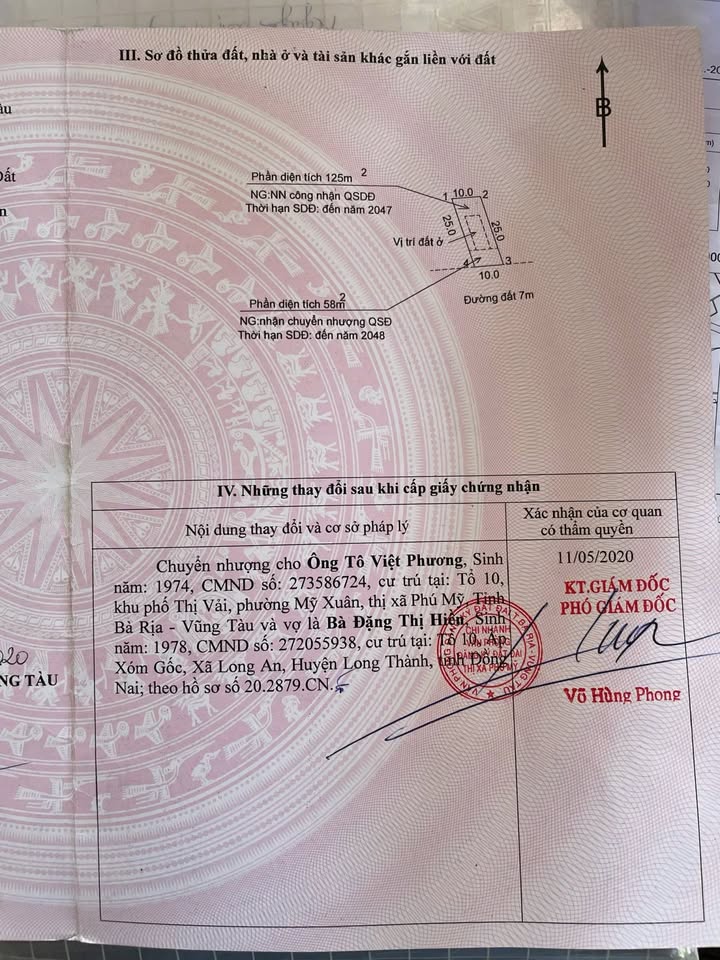 III. Sơ đồ thửa đất, nhà ở và tài sản khác gắn liền với đất
B
Phần diện tích 125m²
NG:NN công nhận QSDĐ
Thời hạn SDĐ: đến năm 2047
1 10.0 2
25.0
25.0
Vị trí đất ở
4 3
10.0
Đường đất 7m
Phần diện tích 58m²
NG:nhận chuyển nhượng QSĐ
Thời hạn SDĐ: đến năm 2048
IV. Những thay đổi sau khi cấp giấy chứng nhận
Nội dung thay đổi và cơ sở pháp lý
Xác nhận của cơ quan
có thẩm quyền
Chuyển nhượng cho Ông Tô Việt Phương, Sinh
năm: 1974, CMND số: 273586724, cư trú tại: Tổ 10,
khu phố Thị Vải, phường Mỹ Xuân, thị xã Phú Mỹ, Tỉnh
Bà Rịa - Vũng Tàu và vợ là Bà Đặng Thị Hiền, Sinh
năm: 1978, CMND số: 272055938, cư trú tại: Tổ 10, Ấp
Xóm Gốc, Xã Long An, Huyện Long Thành, tỉnh Đồng
Nai; theo hồ sơ số 20.2879.CN.
11/05/2020
KT.GIÁM ĐỐC
PHÓ GIÁM ĐỐC
Võ Hùng Phong
CHI NHÁNH
VĂN PHÒNG
ĐĂNG KÝ ĐẤT ĐAI
THỊ XÃ PHÚ MỸ
NG TÀU